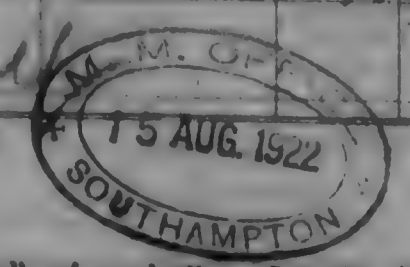 M. M. OFFICE
15 AUG. 1922
SOUTHAMPTON